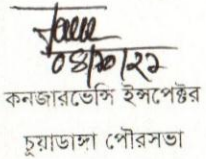 ০৪/১০/২২
কনজারভেন্সি ইন্সপেক্টর
চুয়াডাঙ্গা পৌরসভা